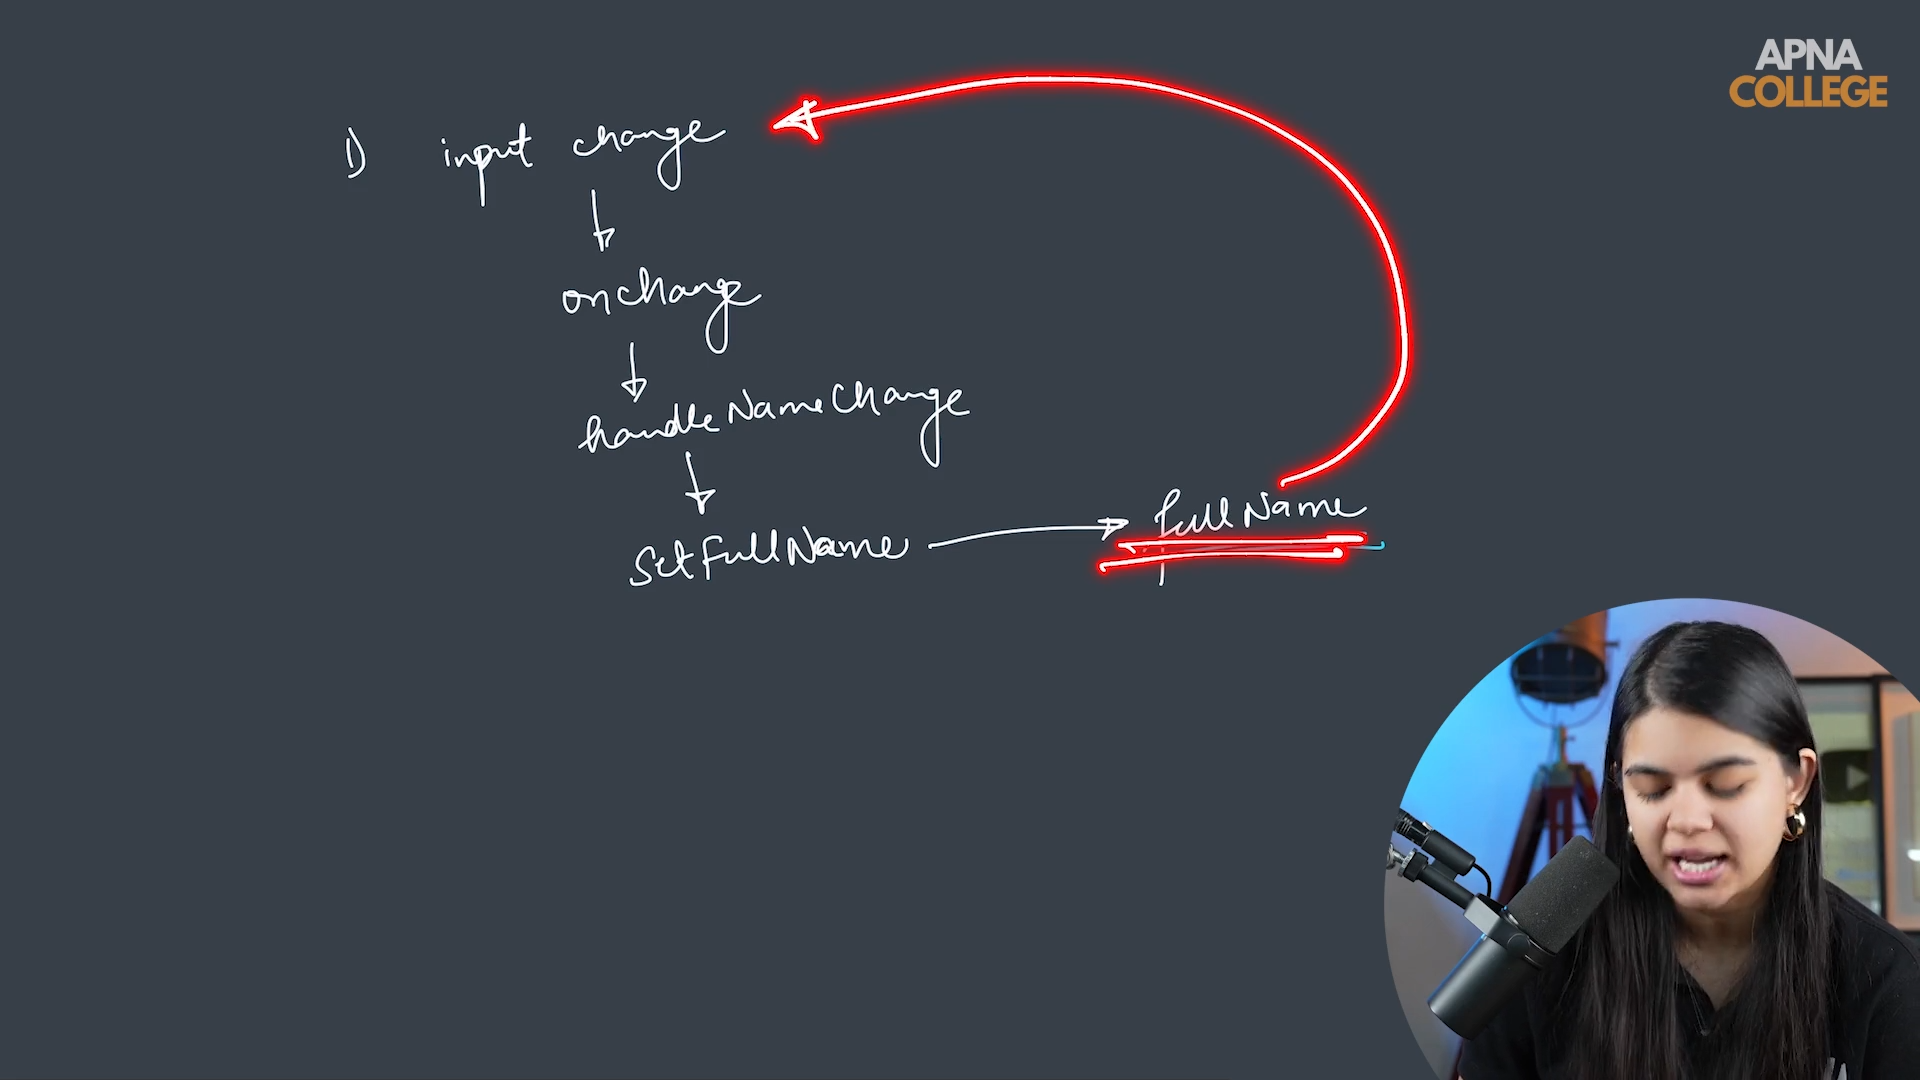 APNA
COLLEGE
1) input change
onchange
handleNameChange
SetFullName
fullName